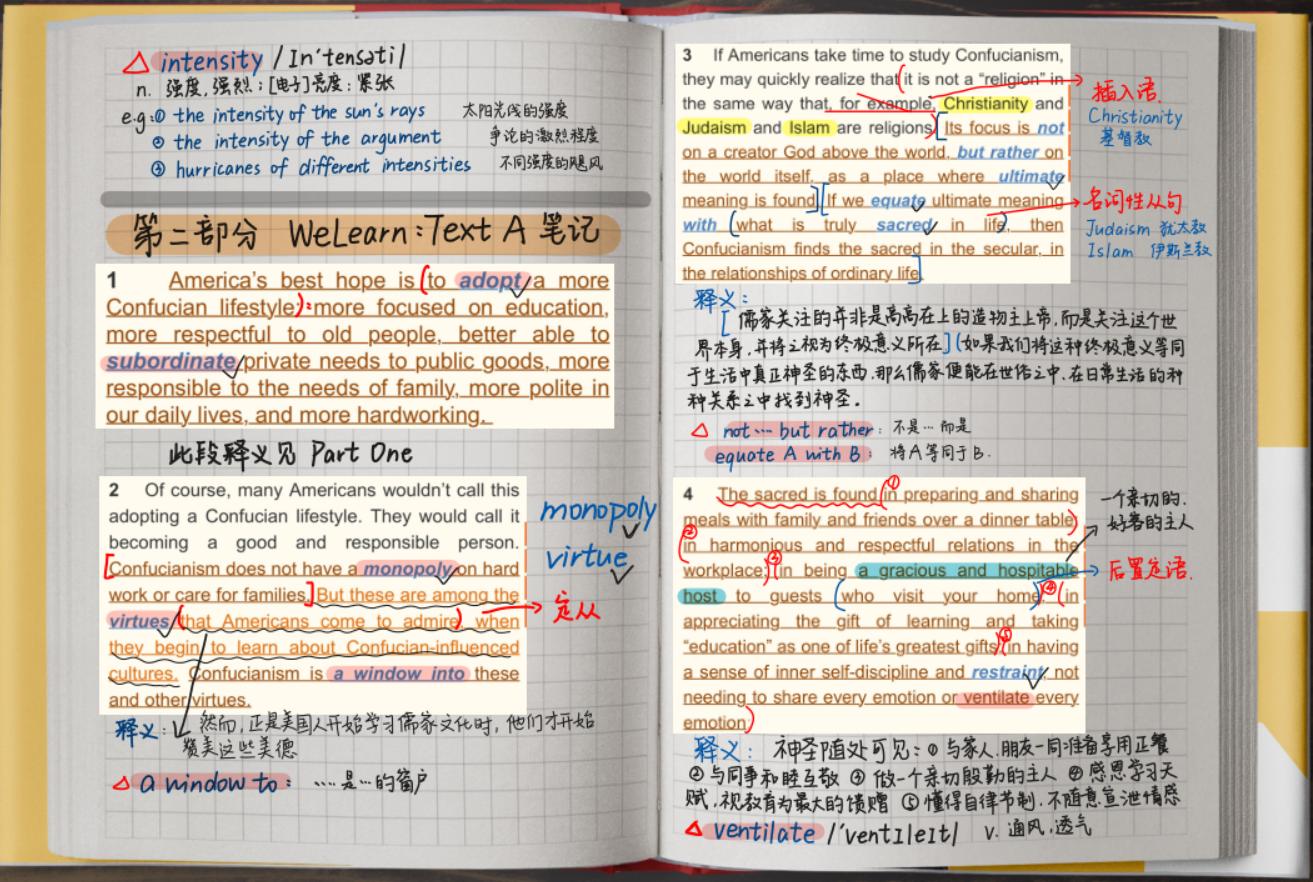 △ intensity /In'tensəti/
n. 强度,强烈;[电子]亮度;紧张
e.g:① the intensity of the sun's rays 太阳光线的强度
② the intensity of the argument 争论的激烈程度
③ hurricanes of different intensities 不同强度的飓风
第二部分 WeLearn:Text A 笔记
1 America's best hope is (to adopt a more
Confucian lifestyle): more focused on education,
more respectful to old people, better able to
subordinate private needs to public goods, more
responsible to the needs of family, more polite in
our daily lives, and more hardworking.
此段释义见 Part One
2 Of course, many Americans wouldn't call this
adopting a Confucian lifestyle. They would call it
becoming a good and responsible person.
[Confucianism does not have a monopoly on hard
work or care for families.] But these are among the
virtues (that Americans come to admire) when
they begin to learn about Confucian-influenced
cultures. Confucianism is a window into these
and other virtues.
monopoly
virtue
定从
释义: 然而,正是美国人开始学习儒家文化时,他们才开始
赞美这些美德
△ a window to: ……是…的窗户
3 If Americans take time to study Confucianism,
they may quickly realize that (it is not a "religion" in
the same way that, for example, Christianity and
Judaism and Islam are religions) [Its focus is not
on a creator God above the world, but rather on
the world itself, as a place where ultimate
meaning is found] [If we equate ultimate meaning
with (what is truly sacred in life), then
Confucianism finds the sacred in the secular, in
the relationships of ordinary life]
插入语
Christianity
基督教
名词性从句
Judaism 犹太教
Islam 伊斯兰教
释义:
[儒家关注的并非是高高在上的造物主上帝,而是关注这个世
界本身,并将之视为终极意义所在](如果我们将这种终极意义等同
于生活中真正神圣的东西,那么儒家便能在世俗之中,在日常生活的种
种关系之中找到神圣。
△ not… but rather: 不是…而是
equate A with B: 将A等同于B.
4 The sacred is found (① in preparing and sharing
meals with family and friends over a dinner table)
(② in harmonious and respectful relations in the
workplace;) (③ in being a gracious and hospitable
host to guests (who visit your home); (④ in
appreciating the gift of learning and taking
"education" as one of life's greatest gifts) (⑤ in having
a sense of inner self-discipline and restraint, not
needing to share every emotion or ventilate every
emotion)
一个亲切的,
好客的主人
后置定语
释义: 神圣随处可见:① 与家人朋友一同准备享用正餐
② 与同事和睦互敬 ③ 做一个亲切殷勤的主人 ④ 感恩学习天
赋,视教育为最大的馈赠 ⑤ 懂得自律节制,不随意宣泄情感
△ ventilate /'ventɪleɪt/ v. 通风,透气